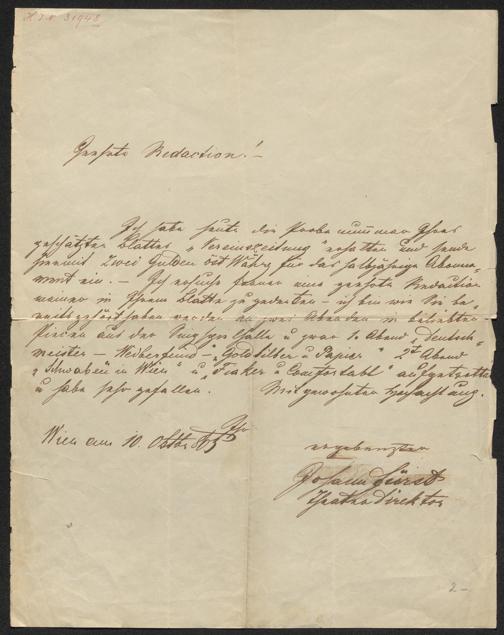 H.I.N. 31948
Geehrte Redaction! –
Ich habe heute die Probenummer Ihres
geschätzten Blattes „Vereinszeitung" erhalten und sende
hiemit zwei Gulden öst Währg für das halbjährige Abonne-
ment ein. – Ich ersuche ferner eine geehrte Redaction
meiner in Ihrem Blatte zu gedenken – ich bin wie Sie be-
reits gehört haben werden an zwei Abenden in beliebten
Piecen aus der Singspielhalle u zwar 1. Abend „Deutsch-
meister – " „Goldsilber u Papier." 2t Abend
„Schwaben in Wien" u „Fiaker u Comfortabl" aufgetretten
u habe sehr gefallen. Mit gewohnter Hochachtung.
Ihr
Wien am 10. Oktbr
ergebenster
Johann Fürst
Theaterdirektor
2 –